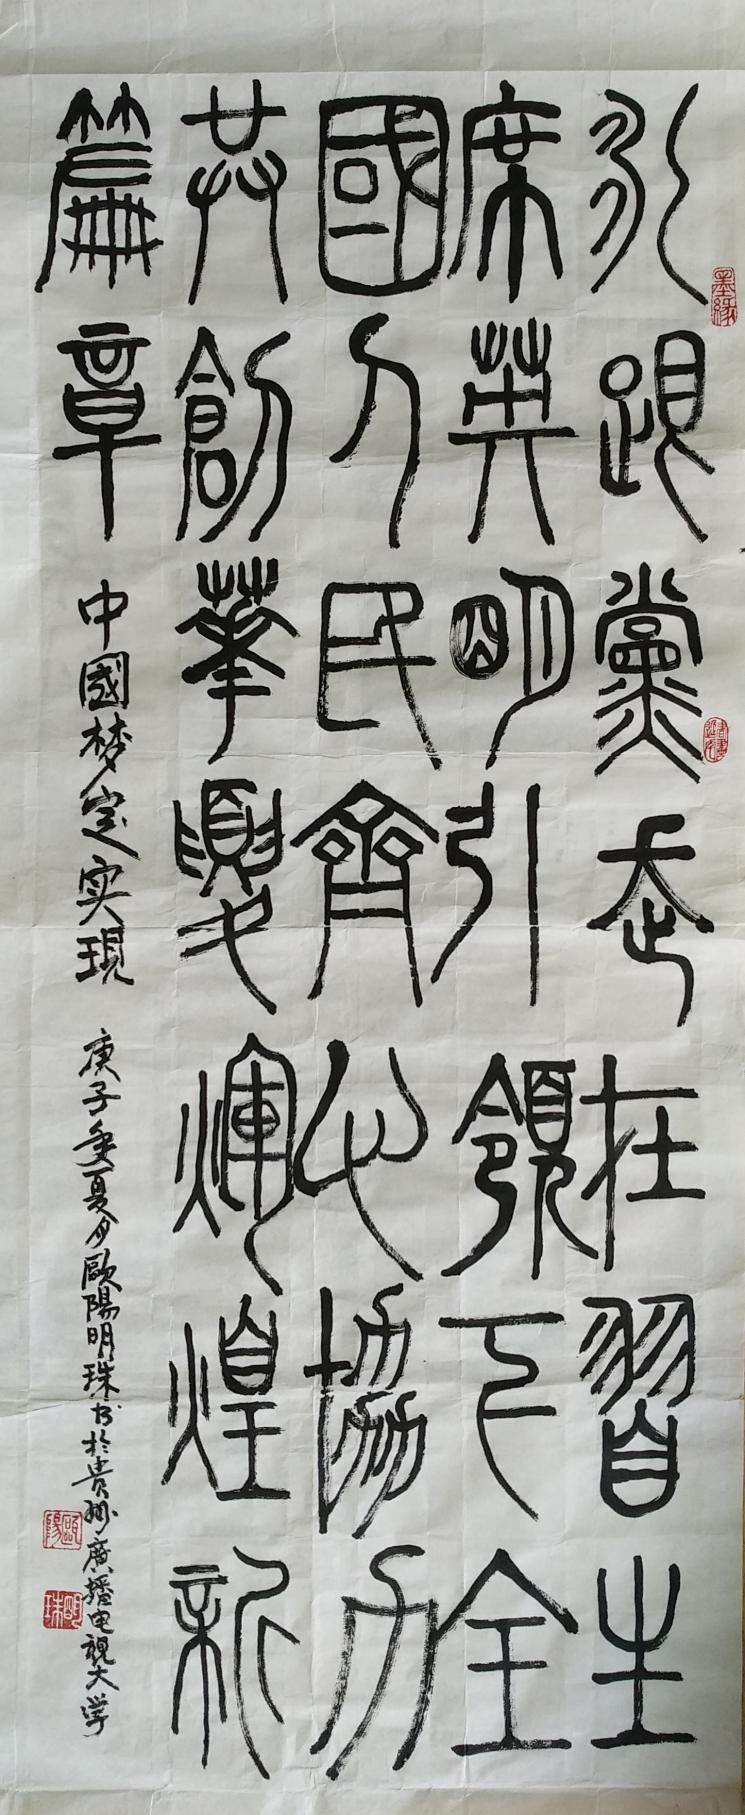 永跟黨走在習主
席英明引領下全
國人民齊心協力
共創華夏輝煌新
篇章
中國梦定实現
庚子年夏月歐陽明珠书於贵州廣播电視大学
墨緣
歐陽
明珠